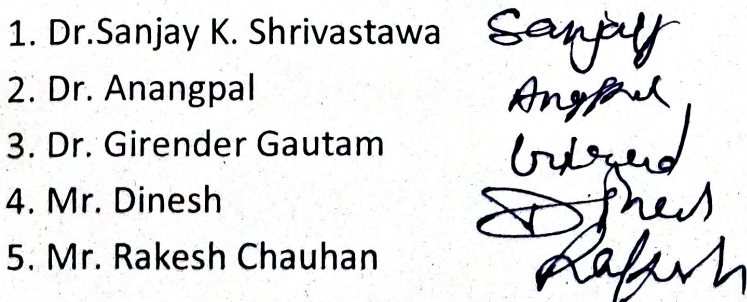 1. Dr.Sanjay K. Shrivastawa Sanjay
2. Dr. Anangpal
3. Dr. Girender Gautam
4. Mr. Dinesh Dinesh
5. Mr. Rakesh Chauhan Rakesh